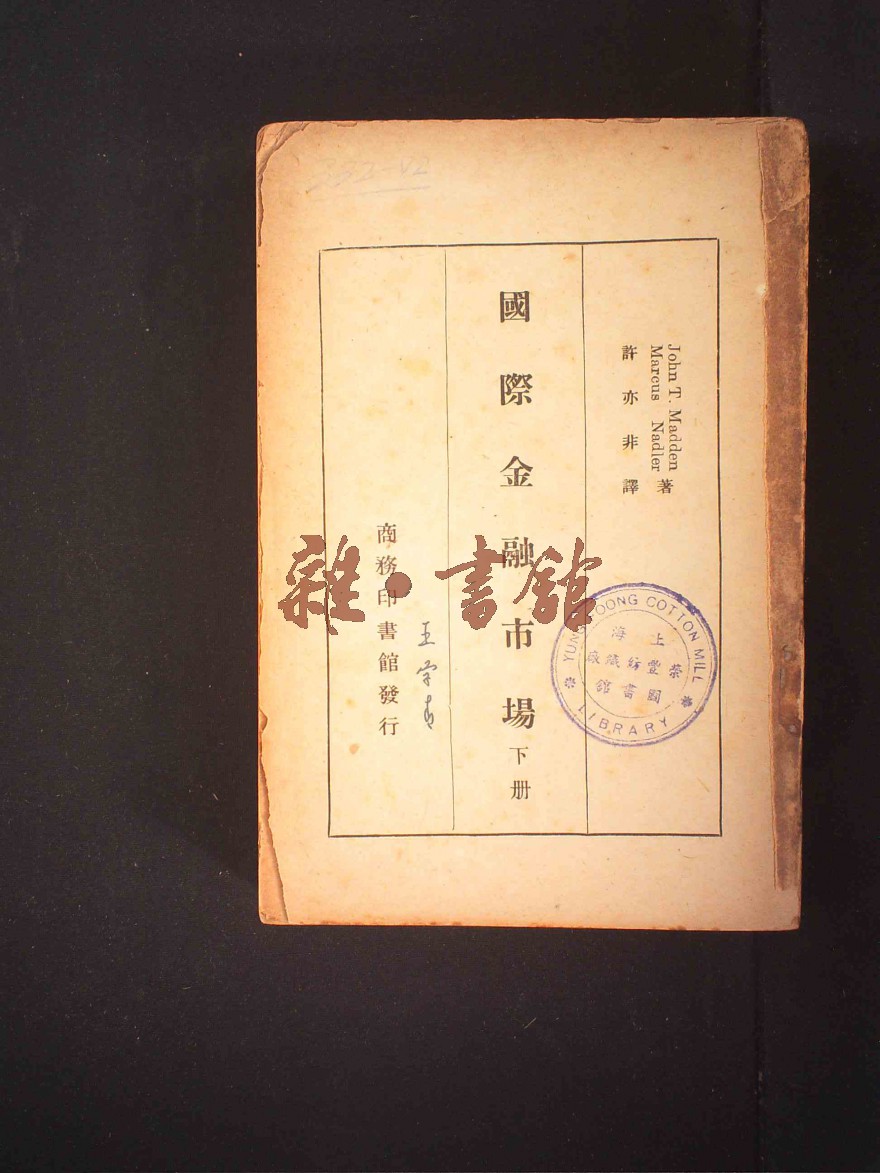 332-V2
John T. Madden
Marcus Nadler 著
許亦非譯
國際金融市場下册
商務印書館發行
雜·書館
YUNG FOONG COTTON MILL
LIBRARY
上海
榮豐紡織廠
圖書館